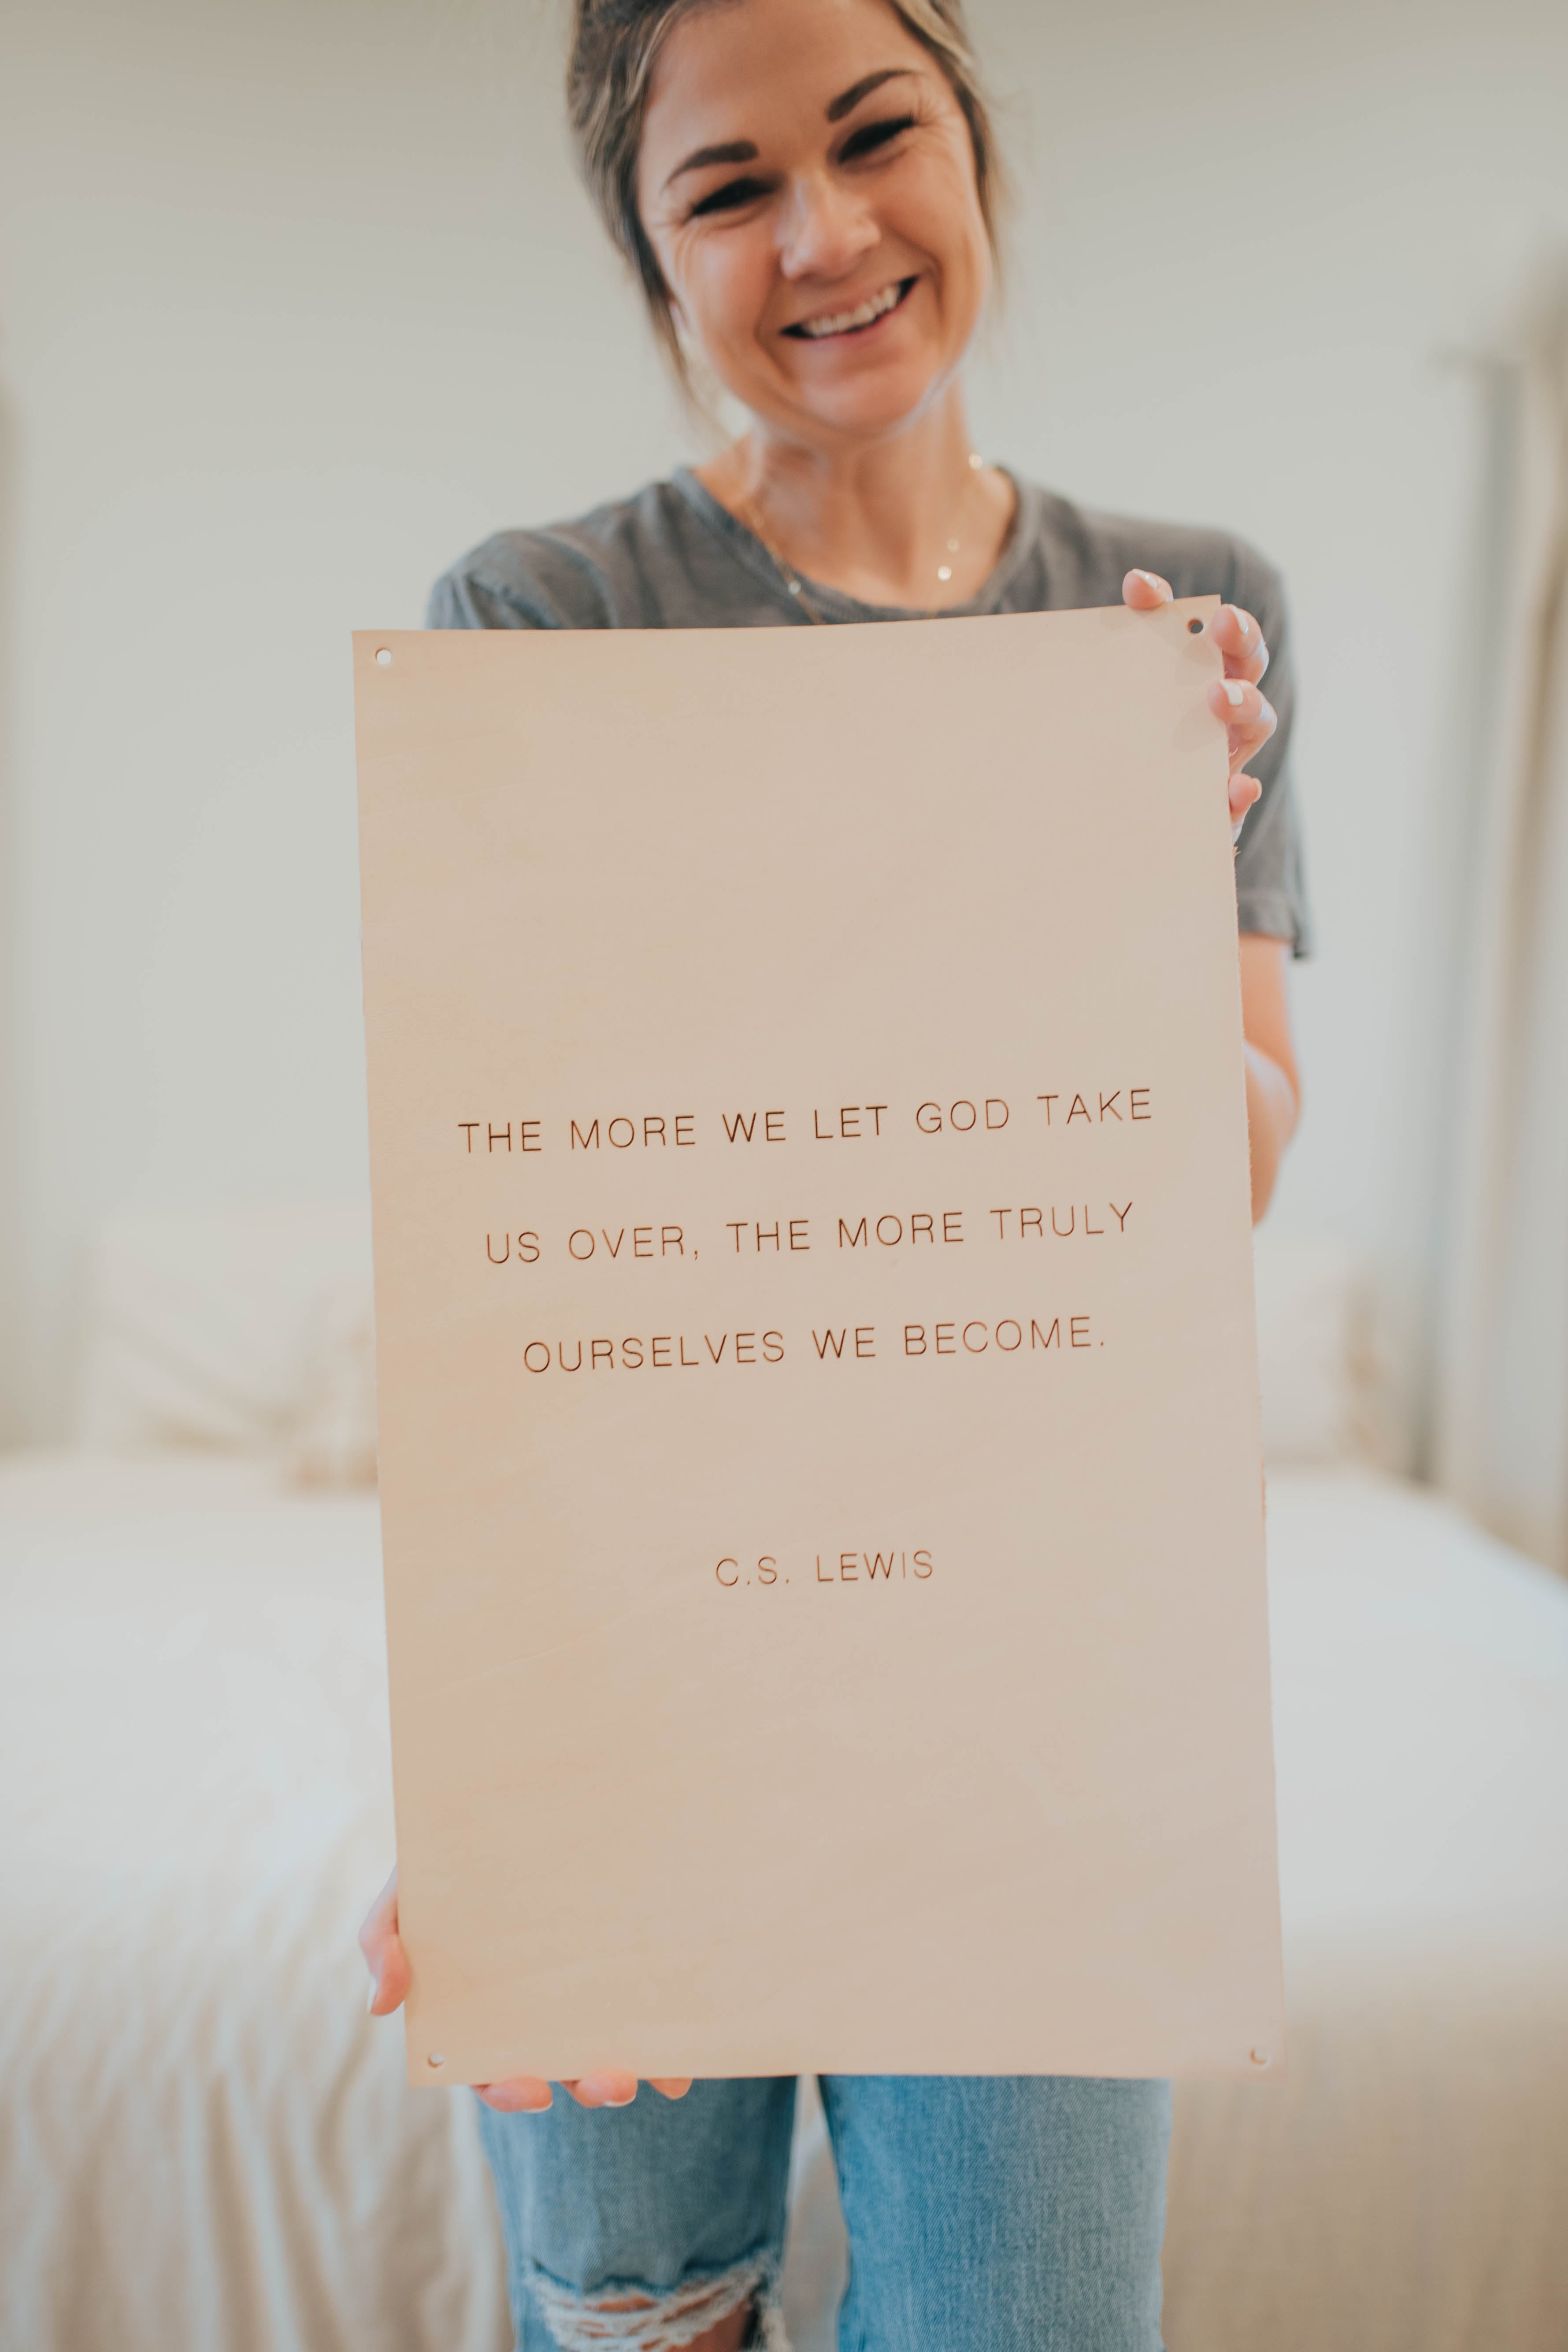 THE MORE WE LET GOD TAKE
US OVER, THE MORE TRULY
OURSELVES WE BECOME.
C.S. LEWIS